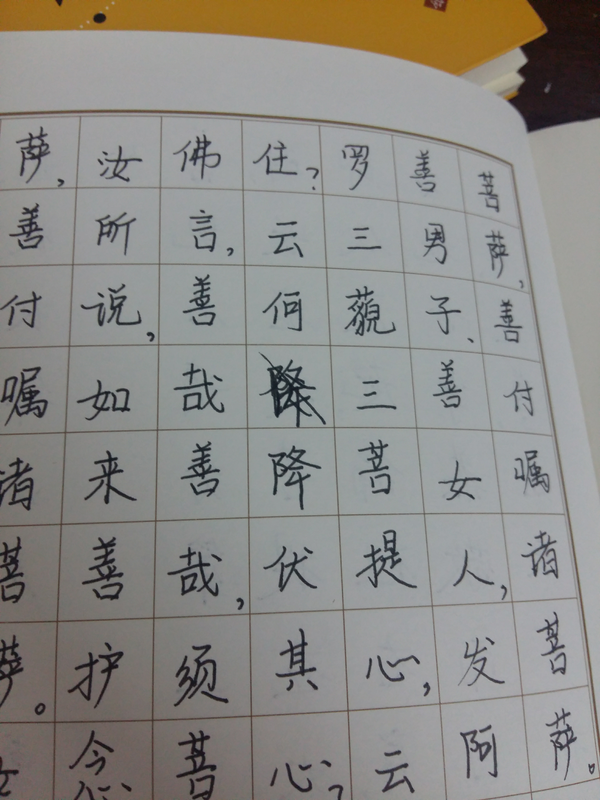 菩萨,善付嘱诸菩萨。
善男子、善女人,发阿
罗三藐三菩提心,云
住?云何降伏其心?
佛言,善哉善哉,须菩
汝所说,如来善护念
萨,善付嘱诸菩萨。